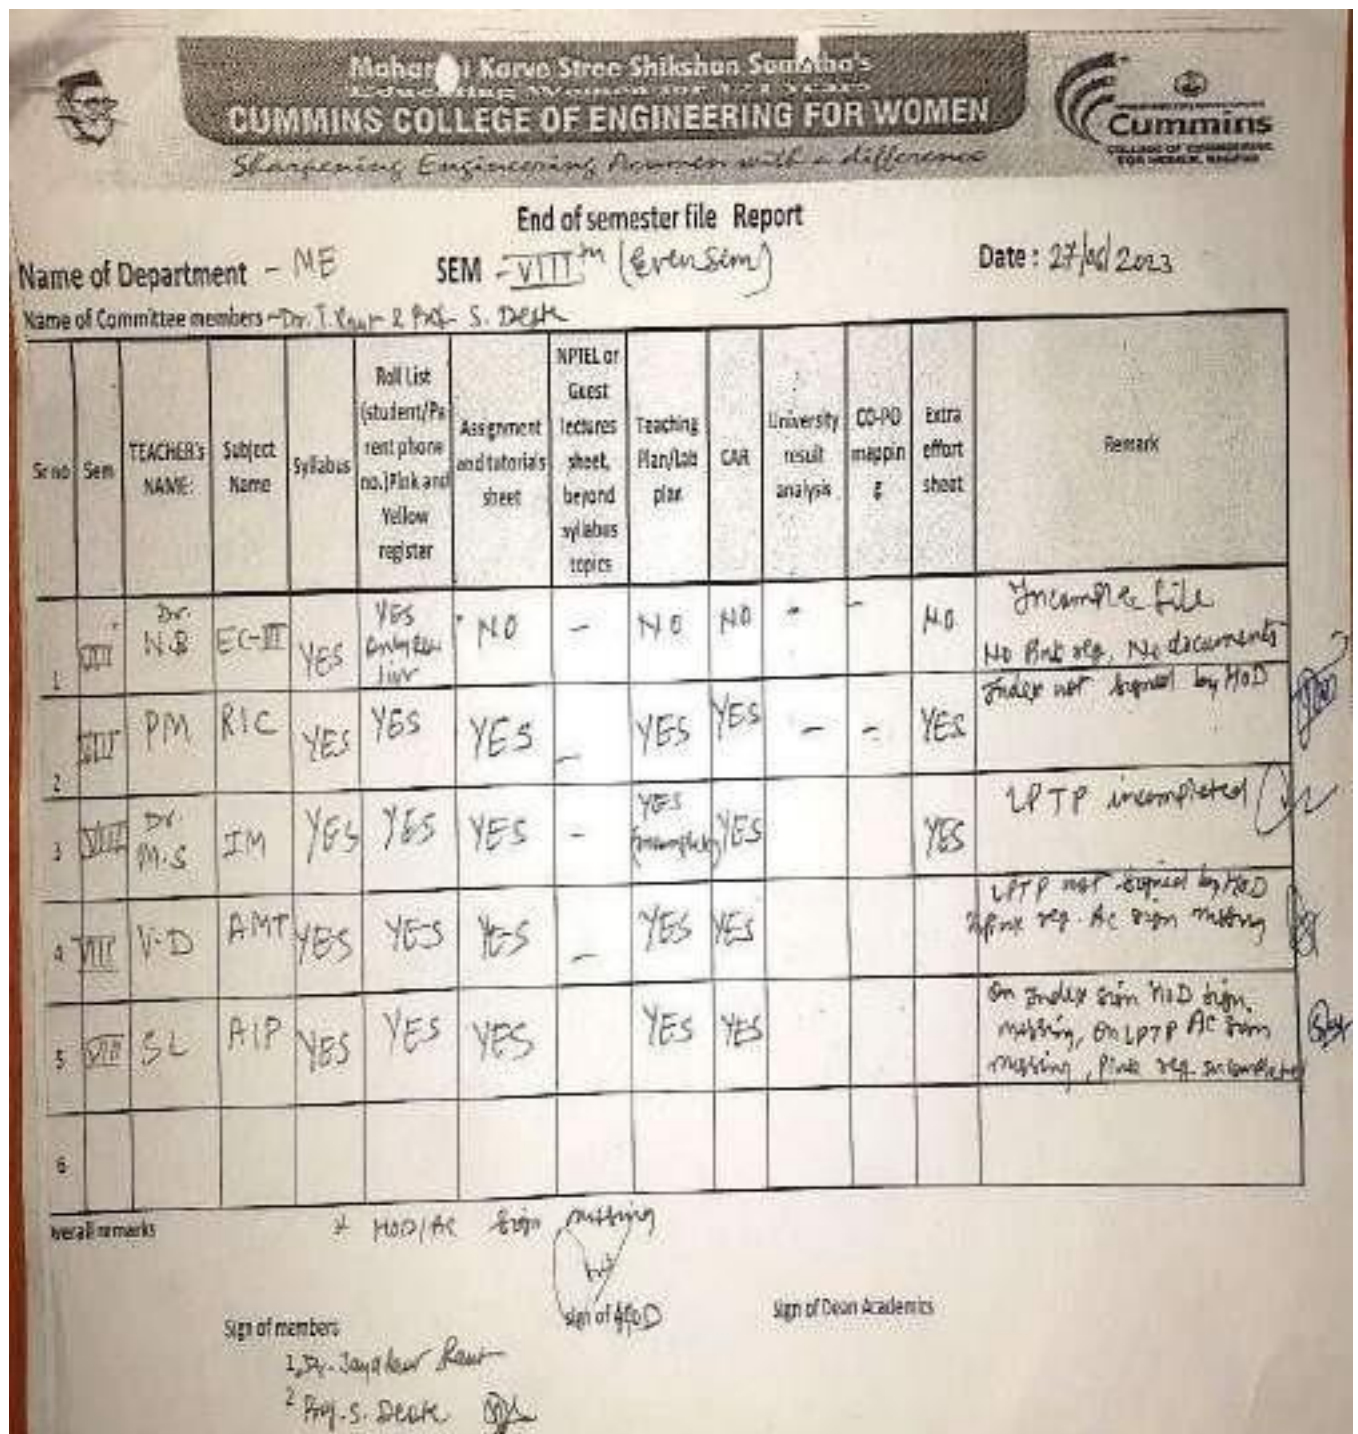 Karve Stree Shikshan
CUMMINS COLLEGE OF ENGINEERING FOR WOMEN
Sharpening Engineering Acumen with a difference
Cummins
COLLEGE OF ENGINEERING
FOR WOMEN, NAGPUR
End of semester file Report
Name of Department - ME SEM - VIIIth (Even Sem) Date : 27/06/2023
Name of Committee members - Dr. & Prof. S.
Sr no Sem TEACHER's NAME: Subject Name Syllabus Roll List (student/Parent phone no.)Pink and Yellow register Assignment and tutorials sheet NPTEL or Guest lectures sheet, beyond syllabus topics Teaching Plan/Lab plan CAR University result analysis CO-PO mapping Extra effort sheet Remark
1 VIII Dr. N.B EC-III YES YES only NO - NO NO - - NO Incomplete file No Pink reg, No documents
2 VIII PM RIC YES YES YES - YES YES - - YES Index not signed by HoD
3 VIII Dr. M.S IM YES YES YES - YES (Incomplete) YES YES LPTP incompleted
4 VIII V.D AMT YES YES YES - YES YES LPTP not signed by HoD Pink reg. AC sign missing
5 VIII SL AIP YES YES YES YES YES On Index sign HoD sign missing, On LPTP AC sign missing, Pink reg. incomplete
6
overall remarks * HOD/AC sign missing
Sign of members sign of HoD Sign of Dean Academics
1, Dr.
2 Prof. S.